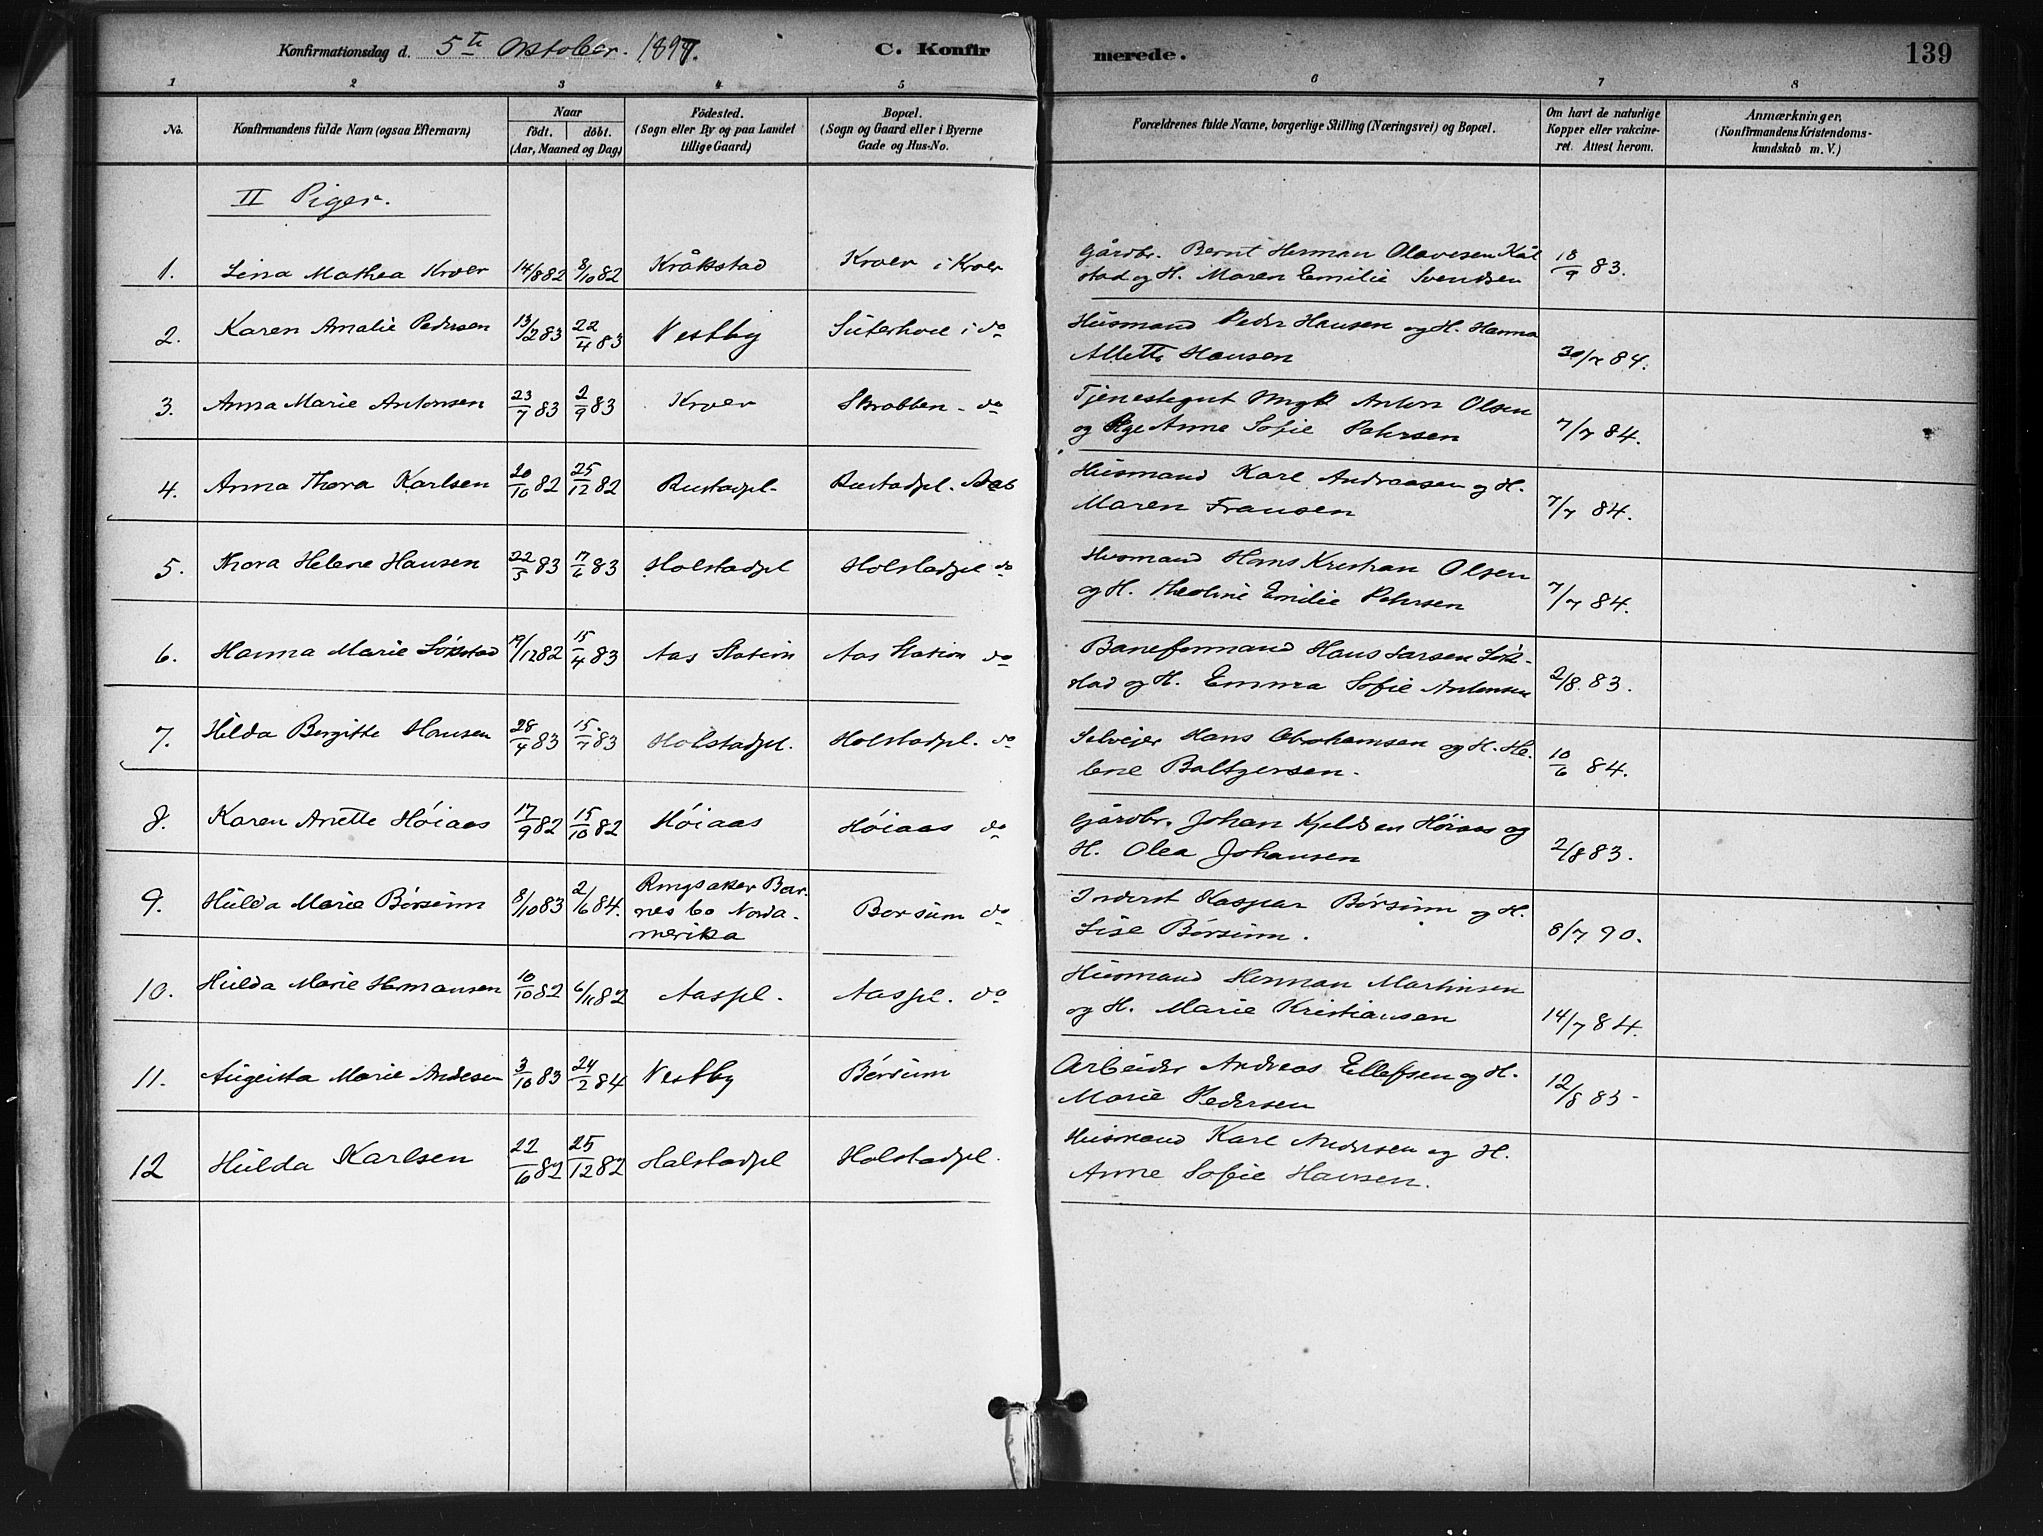 Konfirmationsdag d. 5te Oktober. 1897. C. Konfirmerede. 139
1 2 3 4 5 6 7 8
No. Konfirmandens fulde Navn (ogsaa Efternavn) Naar födt. döbt. (Aar, Maaned og Dag) Födested. (Sogn eller By og paa Landet tillige Gaard) Bopæl. (Sogn og Gaard eller i Byerne Gade og Hus-No. Forældrenes fulde Navne, borgerlige Stilling (Næringsvei) og Bopæl. Om havt de naturlige Kopper eller vakcineret. Attest herom. Anmærkninger. (Konfirmandens Kristendomskundskab m. V.)
II Piger.
1. Lina Mathea Kroer 14/8 82 8/10 82 Kråkstad Kroer i Kroer Gårdbr. Bernt Herman Olavesen Kål
stad og H. Maren Emilie Svendsen 18/9 83.
2. Karen Amalie Pedersen 13/2 83 22/4 83 Vestby Suterhol i do Husmand Peder Hansen og H. Hanna
Alette Hansen 30/7 84.
3. Anna Marie Antonsen 23/7 83 2/9 83 Kroer Skrabben - do Tjenestegut Ungk Anton Olsen
og Pige Anne Sofie Petersen 7/7 84.
4. Anna Thora Karlsen 20/10 82 25/12 82 Rustadpl. Rustadpl. Aas Husmand Karl Andreasen og H.
Maren Fransen 7/7 84.
5. Thora Helene Hansen 22/5 83 17/6 83 Holstadpl Holstadpl do Husmand Hans Kristian Olsen
og H. Theoline Emilie Petersen 7/7 84.
6. Hanna Marie Sökstad 19/12 82 15/4 83 Aas Station Aas Station do Baneformand Hans Larsen Sök-
stad og H. Emma Sofie Antonsen 2/8. 83.
7. Hilda Bergitte Hansen 28/4 83 15/7 83 Holstadpl. Holstadpl. do Selvejer Hans Abrahamsen og H. He-
lene Baltzersen. 10/6 84.
8. Karen Anette Höiaas 17/9 82 15/10 82 Höiaas Höiaas do Gårdbr. Johan Kjeldsen Höiaas og
H. Olea Johansen 2/8 83.
9. Hulda Marie Börsum 8/10 83 2/6 84. Ringsaker Bar-
nes Co Norda-
merika Borsum do Inderst Kaspar Börsum og H.
Lise Börsum. 8/7 90.
10. Hulda Marie Hermansen 10/10 82 6/11 82 Aaspl. Aaspl. do Husmand Herman Martinsen
og H. Marie Kristiansen 14/7 84.
11. Augusta Marie Andesen 3/10 83 24/2 84 Vestby Börsum Arbeider Andreas Ellefsen og H.
Marie Pedersen 12/8 85-
12 Hulda Karlsen 22/10 82 25/12 82 Holstadpl Holstadpl. Husmand Karl Andersen og H.
Anne Sofie Hansen.